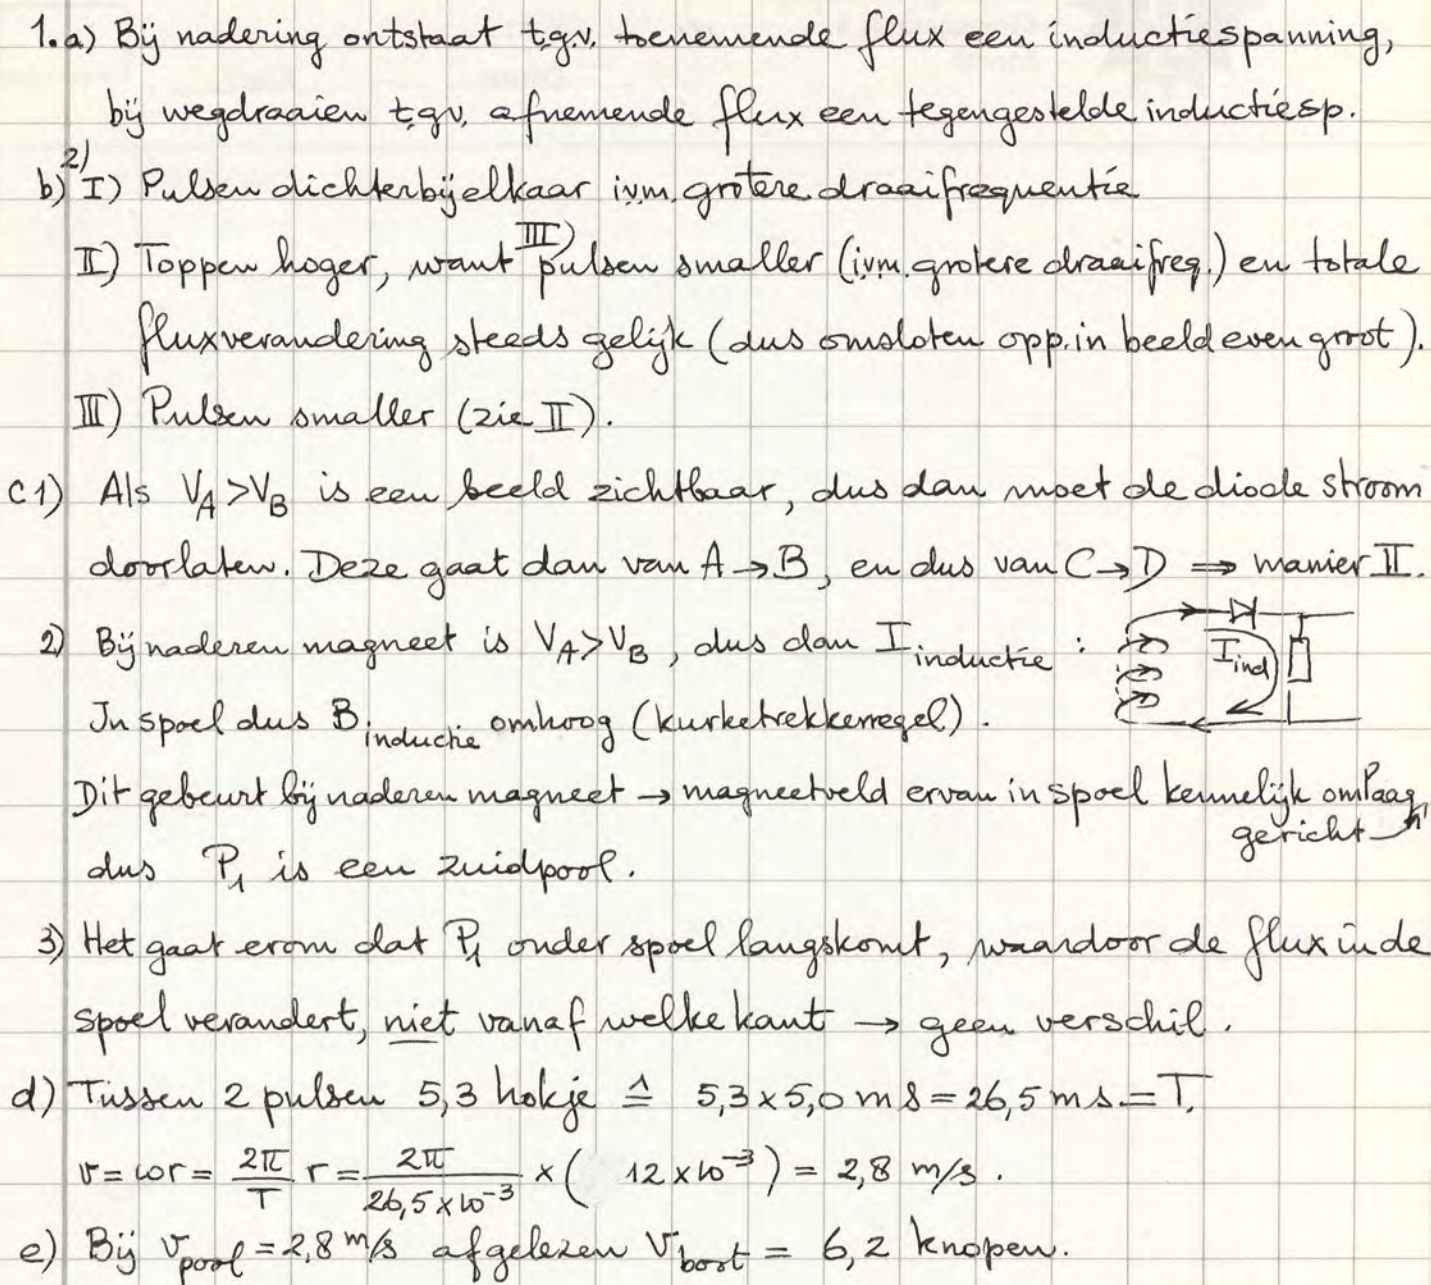 1.a) Bij nadering ontstaat t.g.v. toenemende flux een inductiespanning,
bij wegdraaien t.g.v. afnemende flux een tegengestelde inductiesp.
b) 2) I) Pulsen dichterbij elkaar ivm. grotere draaifrequentie
II) Toppen hoger, want III) pulsen smaller (ivm. grotere draaifreq.) en totale
fluxverandering steeds gelijk (dus omsloten opp. in beeld even groot).
III) Pulsen smaller (zie II).
c1) Als V_A > V_B is een beeld zichtbaar, dus dan moet de diode stroom
doorlaten. Deze gaat dan van A → B, en dus van C → D ⇒ manier II.
2) Bij naderen magneet is V_A > V_B, dus dan I_inductie :
I_ind
In spoel dus B_inductie omhoog (kurketrekkerregel).
Dit gebeurt bij naderen magneet → magneetveld ervan in spoel kennelijk omlaag
gericht
dus P_1 is een zuidpool.
3) Het gaat erom dat P_1 onder spoel langskomt, waardoor de flux in de
spoel verandert, niet vanaf welke kant → geen verschil.
d) Tussen 2 pulsen 5,3 hokje ≙ 5,3 × 5,0 ms = 26,5 ms. = T.
v = ωr = 2π/T r = 2π/(26,5 × 10⁻³) × ( 12 × 10⁻³ ) = 2,8 m/s.
e) Bij v_pool = 2,8 m/s afgelezen v_boot = 6,2 knopen.